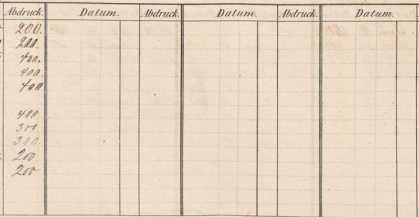 Abdruck. Datum. Abdruck. Datum. Abdruck. Datum.
200.
200.
400.
400.
400
400
300.
300.
200
200